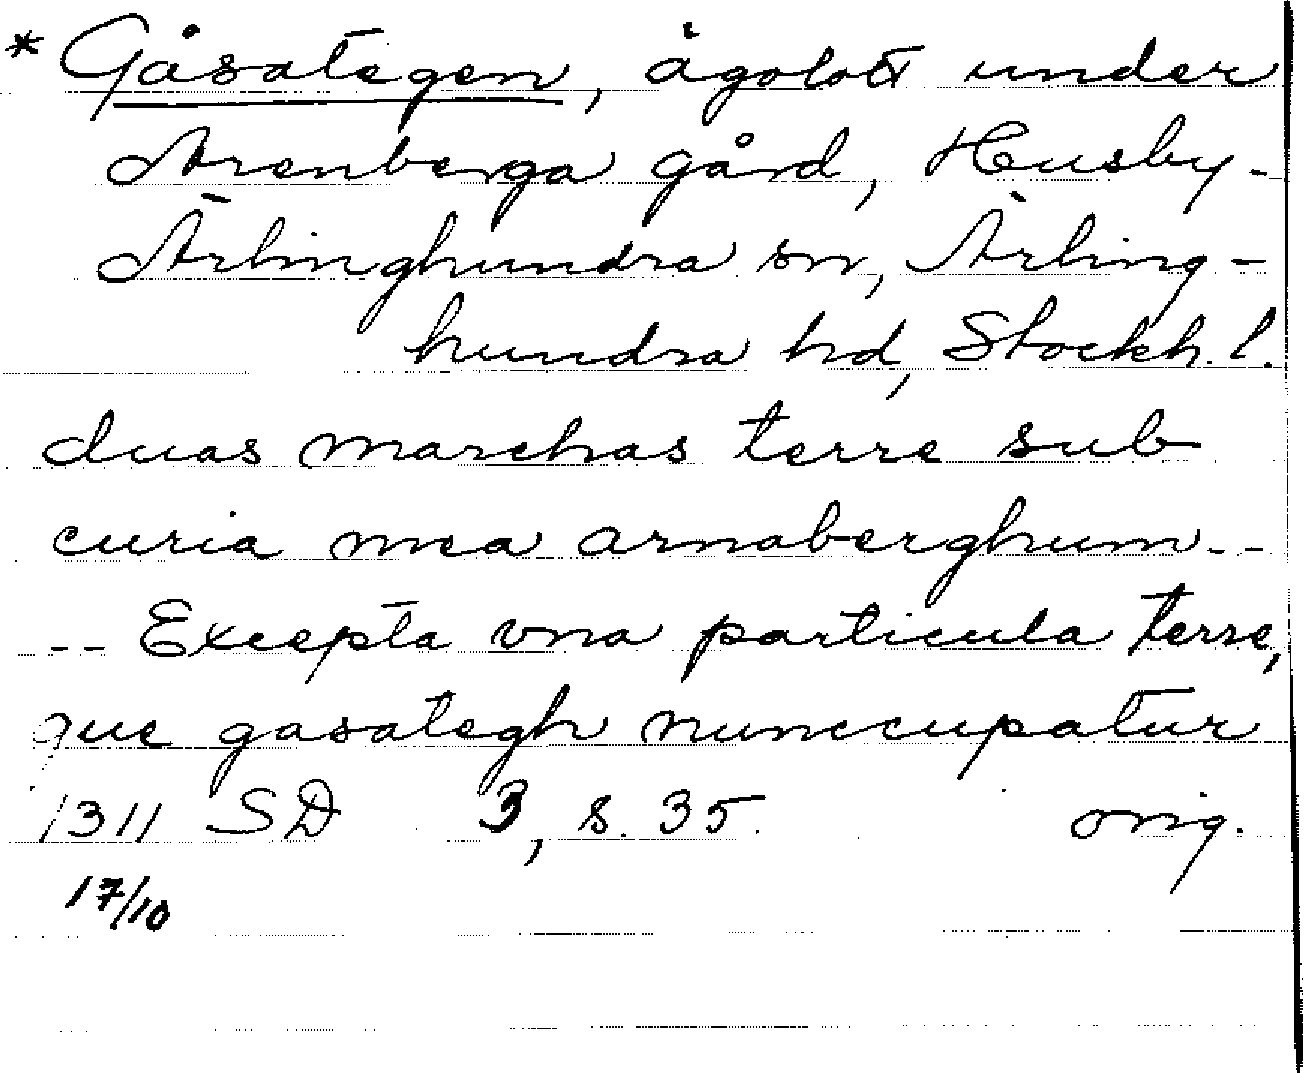 * Gåsategen, ägolott under
Arenberga gård, Husby-
Ärlinghundra sn, Ärling-
hundra hd, Stockh. l.
duas marchas terre sub
curia mea arnaberghum --
-- Excepta vna particula terre,
que gasategh nunccupatur
1311 SD 3, s. 35. orig.
17/10